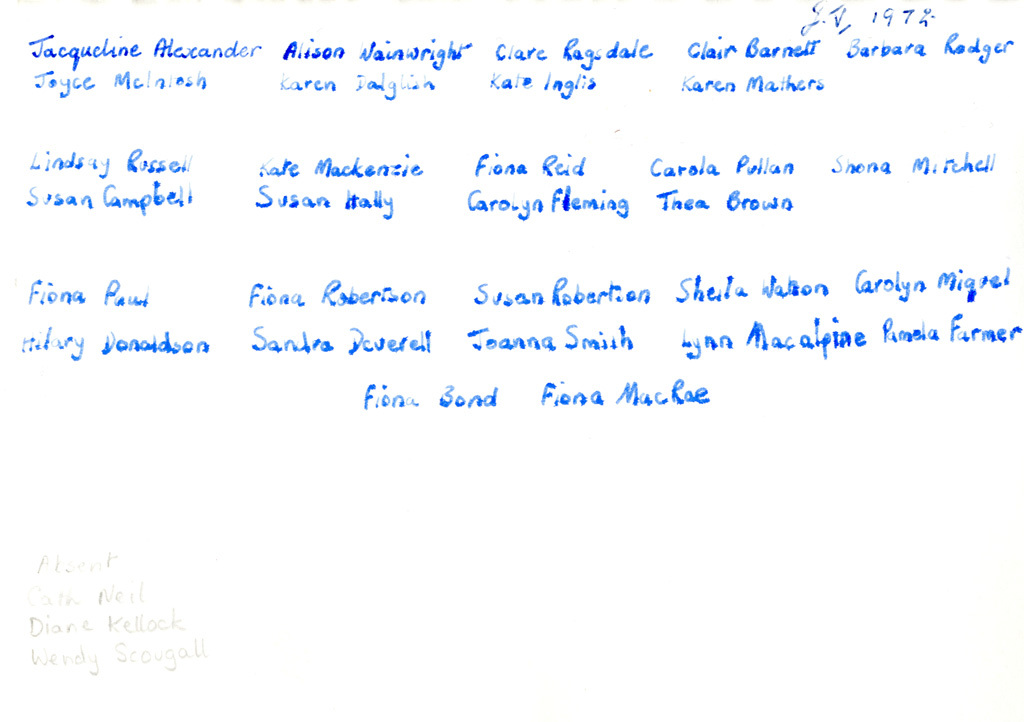 J.V, 1972
Jacqueline Alexander Alison Wainwright Clare Ragsdale Clair Barnett Barbara Rodger
Joyce McIntosh Karen Dalglish Kate Inglis Karen Mathers
Lindsay Russell Kate Mackenzie Fiona Reid Carola Pullan Shona Mitchell
Susan Campbell Susan Hally Carolyn Fleming Thea Brown
Fiona Paul Fiona Robertson Susan Robertson Sheila Watson Carolyn Miquel
Hilary Donaldson Sandra Deverell Joanna Smith Lynn Macalpine Pamela Farmer
Fiona Bond Fiona MacRae
Absent
Cath Neil
Diane Kellock
Wendy Scougall